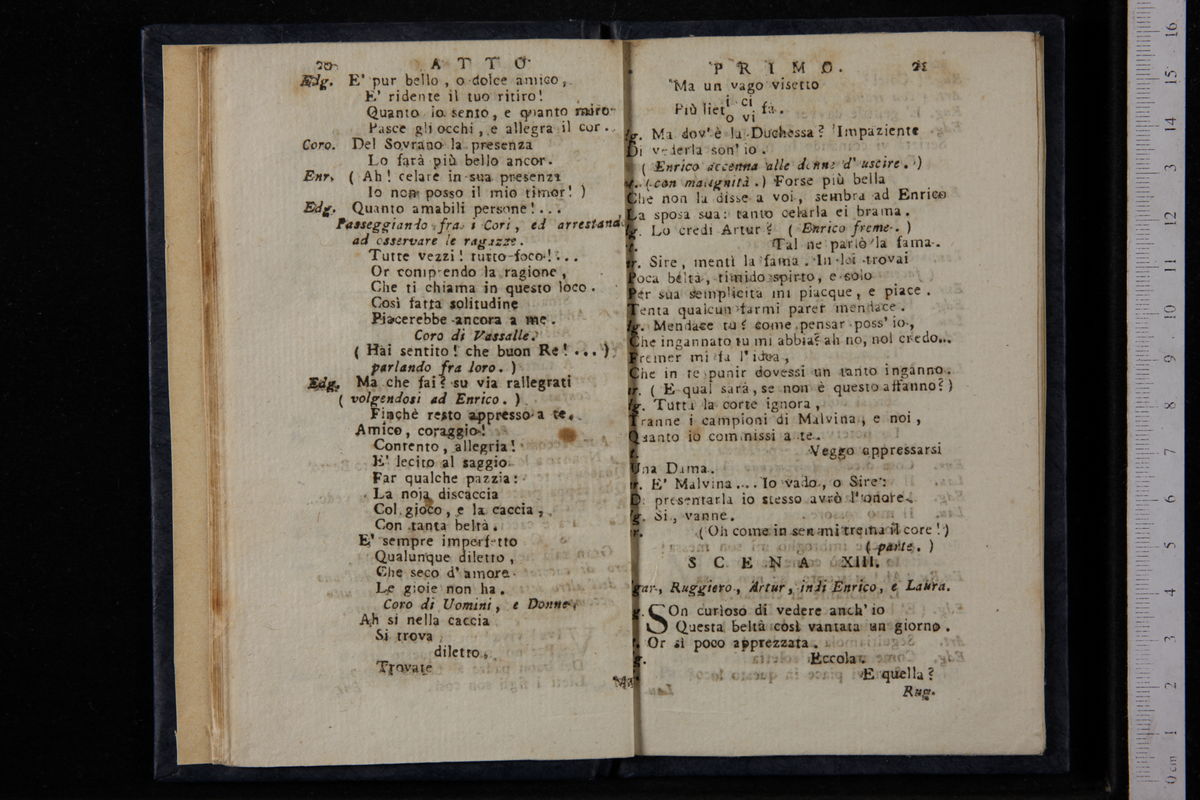 20 ATTO
Edg. E' pur bello, o dolce amico,
E' ridente il tuo ritiro!
Quanto io sento, e quanto miro
Pasce gli occhi, e allegra il cor.
Coro. Del Sovrano la presenza
Lo farà più bello ancor.
Enr. ( Ah! celare in sua presenza
Io non posso il mio timor! )
Edg. Quanto amabili persone!...
Passeggiando fra i Cori, ed arrestand
ad osservare le ragazze.
Tutte vezzi! tutto foco!...
Or comprendo la ragione,
Che ti chiama in questo loco.
Così fatta solitudine
Piacerebbe ancora a me.
Coro di Vassalle.
( Hai sentito! che buon Re!... )
parlando fra loro. )
Edg. Ma che fai? su via rallegrati
( volgendosi ad Enrico. )
Finchè resto appresso a te.
Amico, coraggio!
Contento, allegria!
E' lecito al saggio
Far qualche pazzia:
La noja discaccia
Col gioco, e la caccia,
Con tanta beltà.
E' sempre imperfetto
Qualunque diletto,
Che seco d'amore
Le gioie non ha.
Coro di Uomini, e Donne,
Ah si nella caccia
Si trova
diletto,
Trovate
Ma
PRIMO. 21
Ma un vago visetto
Più liet i o ci vi fa.
lg. Ma dov'è la Duchessa? Impaziente
Di vederla son'io.
( Enrico accenna alle donne d'uscire. )
t. (con malignità.) Forse più bella
Che non la disse a voi, sembra ad Enrico
La sposa sua: tanto celarla ei brama.
lg. Lo credi Artur? ( Enrico freme. )
t. Tal ne parlò la fama.
nr. Sire, mentì la fama. In lei trovai
Poca beltà, timido spirto, e solo
Per sua semplicità mi piacque, e piace.
Tenta qualcun farmi parer mendace.
lg. Mendace tu? come pensar poss'io,
Che ingannato tu mi abbia? ah no, nol credo...
Fremer mi fa l'idea,
Che in te punir dovessi un tanto inganno.
nr. ( E qual sarà, se non è questo affanno? )
lg. Tutta la corte ignora,
Tranne i campioni di Malvina, e noi,
Quanto io commissi a te.
t. Veggo appressarsi
Una Dama.
nr. E' Malvina.... Io vado, o Sire:
Di presentarla io stesso avrò l'onore.
lg. Si, vanne.
nr. ( Oh come in sen mi trema il core! )
( parte. )
SCENA XIII.
gar, Ruggiero, Artur, indi Enrico, e Laura.
g. SOn curioso di vedere anch'io
Questa beltà così vantata un giorno.
t. Or sì poco apprezzata.
g. Eccola.
E quella?
Rug.